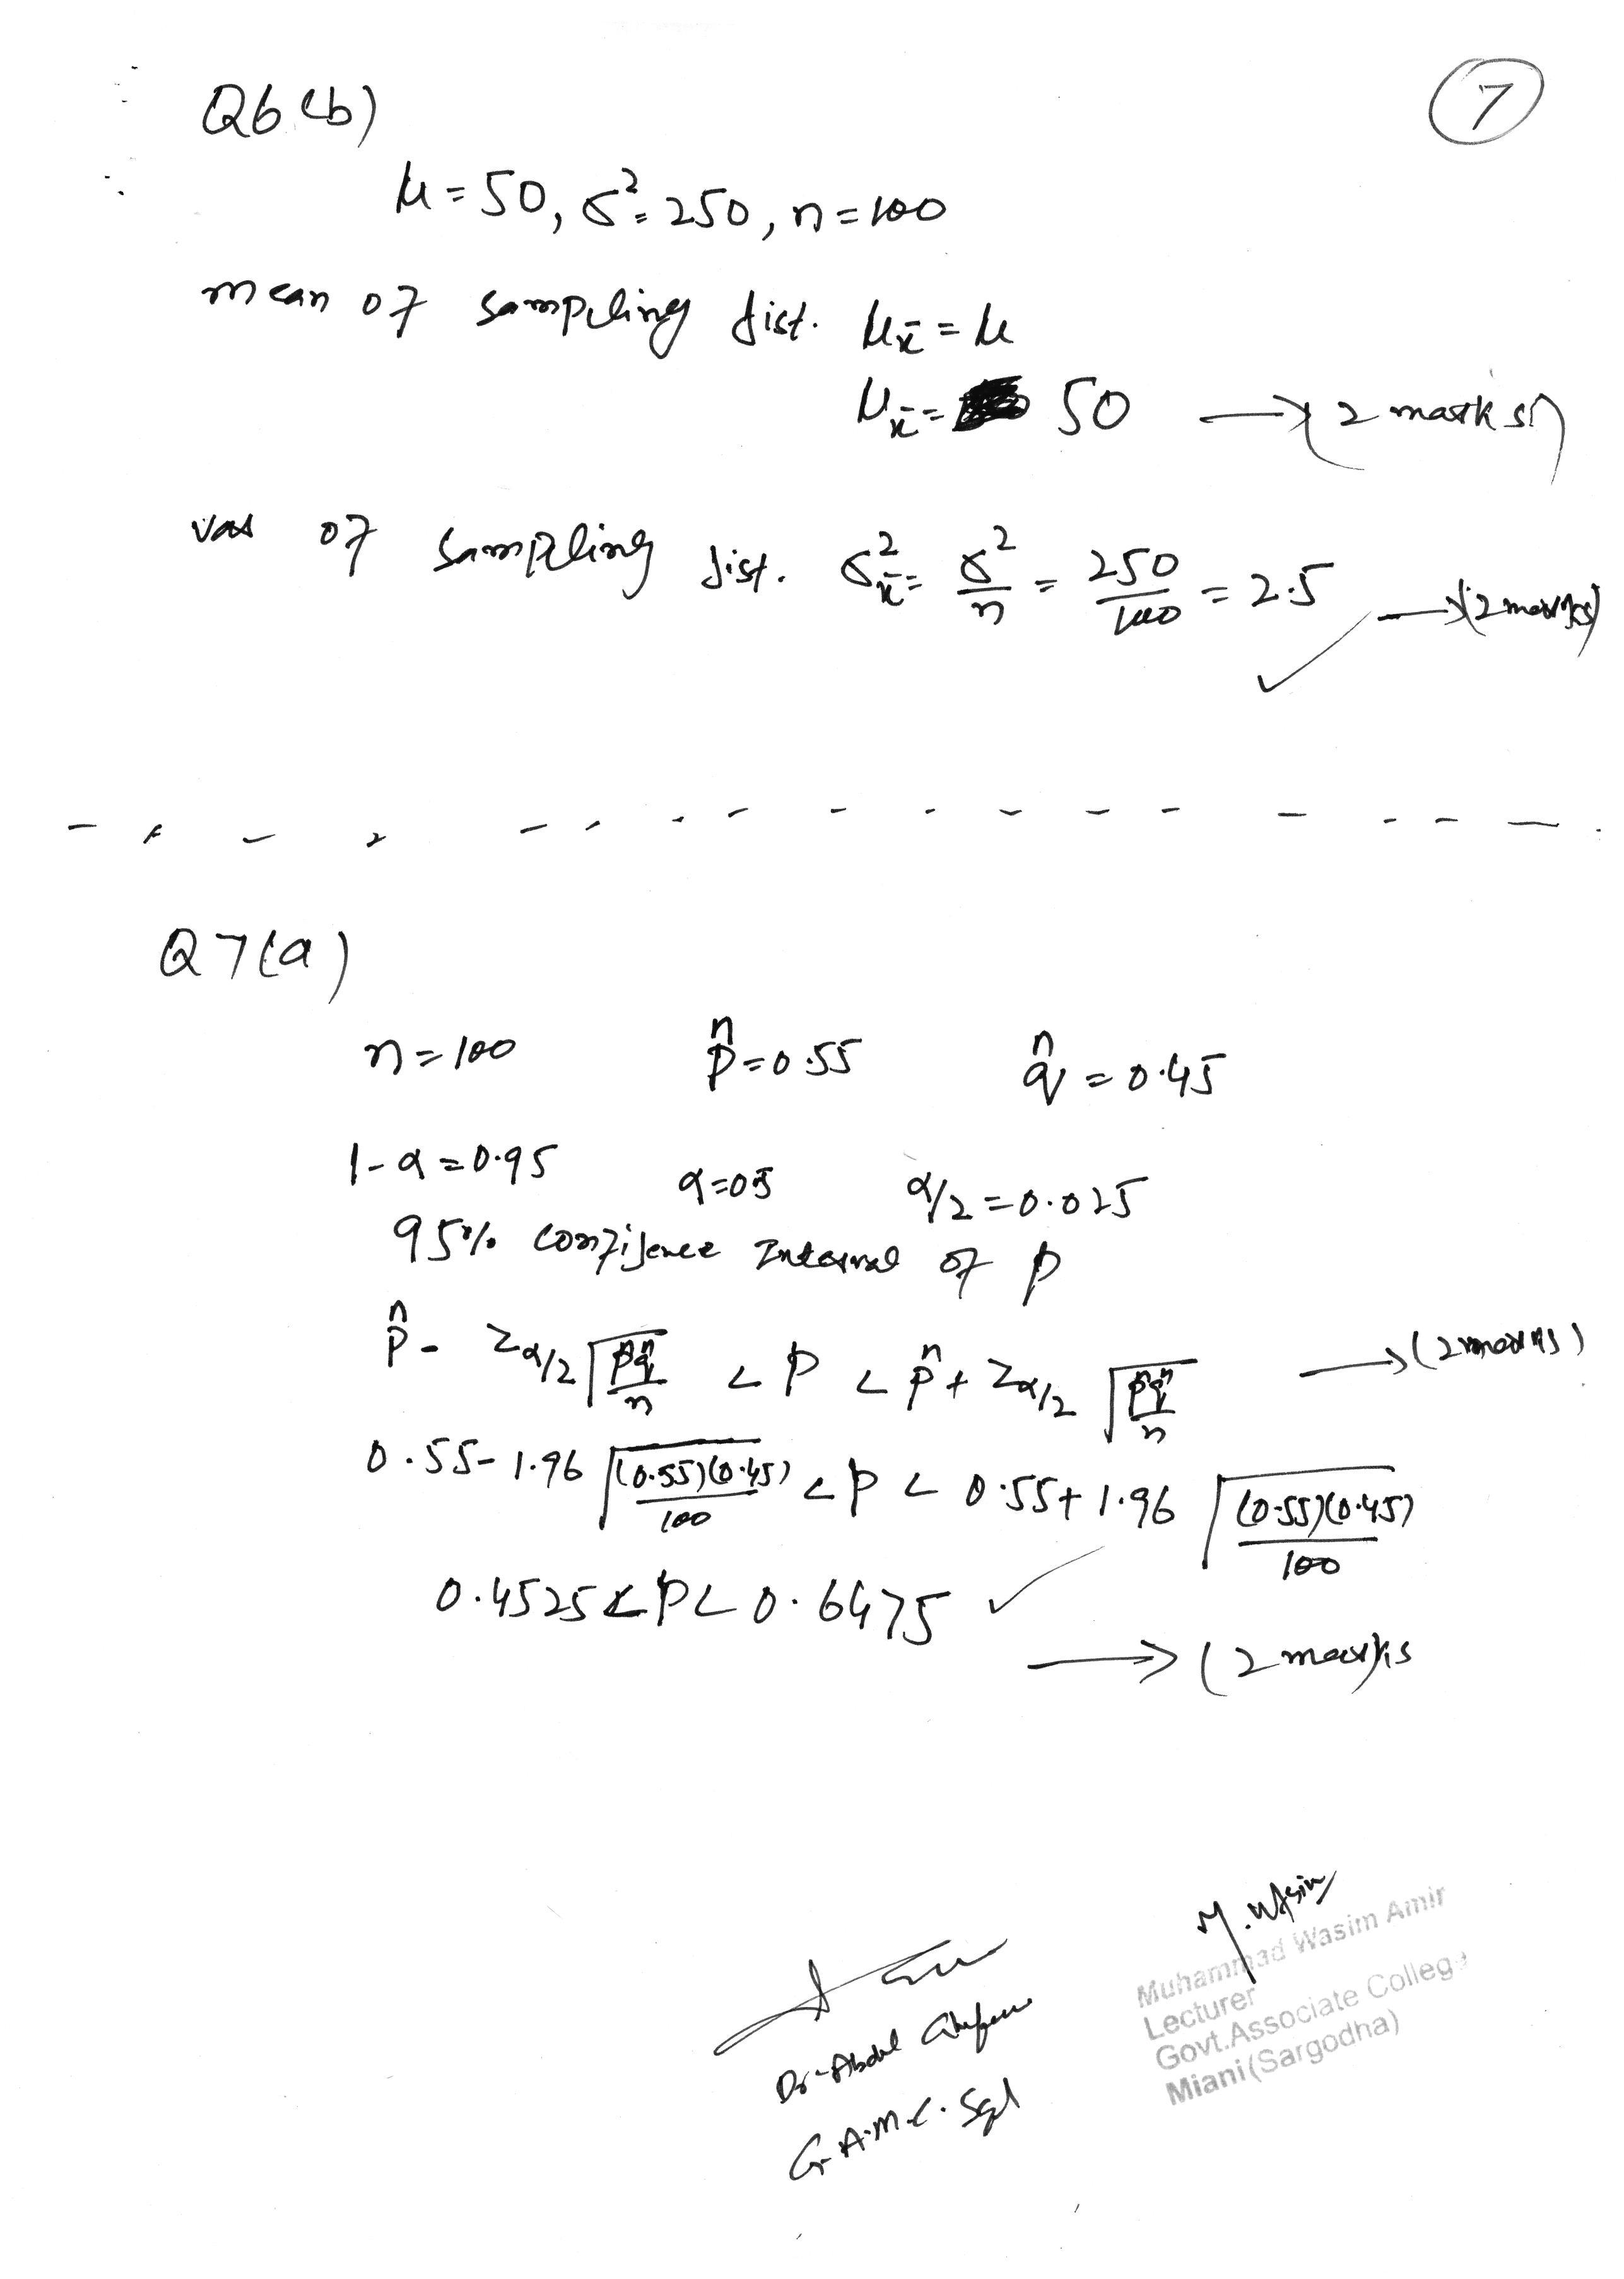 7
Q6(b)
μ=50, σ²=250, n=100
mean of sampling dist. μx̄=μ
μx̄= 50 → (2 marks)
var of sampling dist. σ²x̄= σ²/n = 250/100 = 2.5 → (2 marks)
Q7(a)
n=100 p̂=0.55 q̂=0.45
1-α=0.95 α=05 α/2=0.025
95% Confidence Interval of p
p̂ - Zα/2 √(p̂q̂/n) < p < p̂ + Zα/2 √(p̂q̂/n) → (2 marks)
0.55-1.96 √((0.55)(0.45)/100) < p < 0.55+1.96 √((0.55)(0.45)/100)
0.4525<p<0.6475
→ (2 marks
M.Wasim
Muhammad Wasim Amir
Lecturer
Govt.Associate College
Miani(Sargodha)
Dr-Abdul
G.A.M.C. Sgd